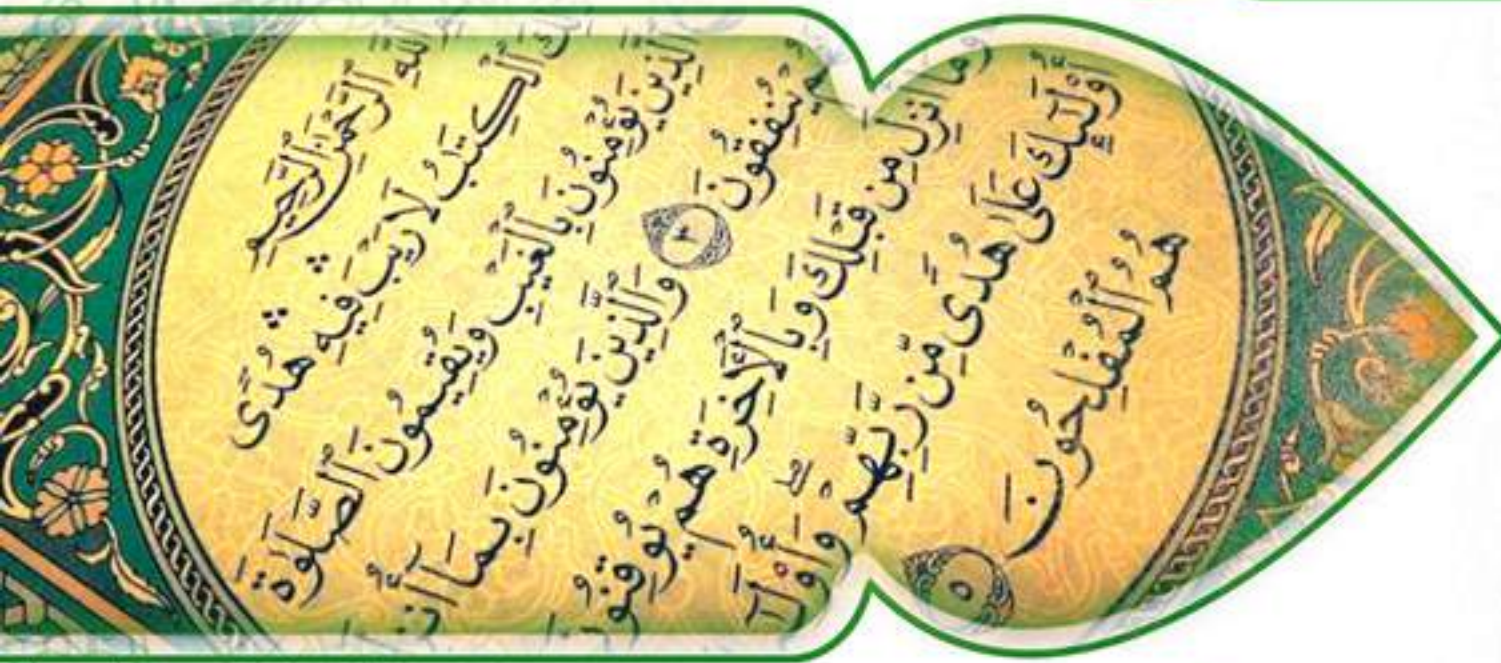 ٱللَّهِ ٱلرَّحْمَٰنِ ٱلرَّحِيمِ
ٱلْكِتَٰبُ لَا رَيْبَ ۛ فِيهِ ۛ هُدًى
ٱلَّذِينَ يُؤْمِنُونَ بِٱلْغَيْبِ وَيُقِيمُونَ ٱلصَّلَوٰةَ
يُنفِقُونَ ٣ وَٱلَّذِينَ يُؤْمِنُونَ بِمَآ
وَمَآ أُنزِلَ مِن قَبْلِكَ وَبِٱلْءَاخِرَةِ هُمْ يُوقِنُونَ
أُو۟لَٰٓئِكَ عَلَىٰ هُدًى مِّن رَّبِّهِمْ ۖ
هُمُ ٱلْمُفْلِحُونَ ٥